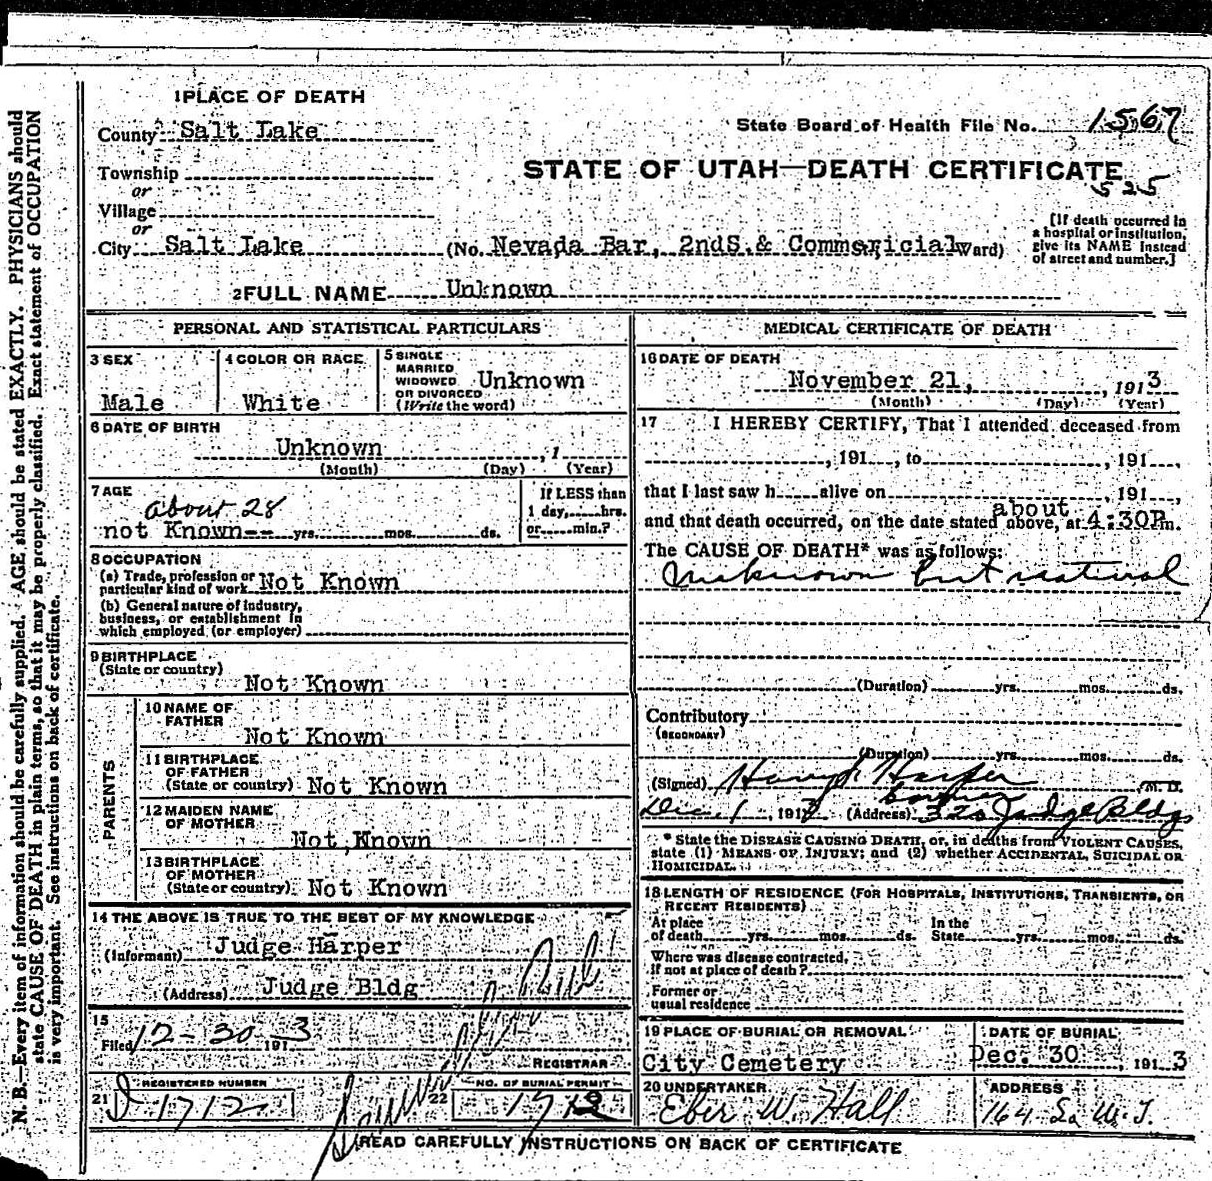 N. B.—Every item of information should be carefully supplied. AGE should be stated EXACTLY. PHYSICIANS should
state CAUSE OF DEATH in plain terms, so that it may be properly classified. Exact statement of OCCUPATION
is very important. See instructions on back of certificate.
1 PLACE OF DEATH
County Salt Lake
State Board of Health File No. 1567
Township
STATE OF UTAH—DEATH CERTIFICATE
525
or
Village
or
City Salt Lake (No. Nevada Bar, 2nd S. & Commericial Ward)
[If death occurred in
a hospital or institution,
give its NAME instead
of street and number.]
2 FULL NAME Unknown
PERSONAL AND STATISTICAL PARTICULARS
3 SEX
Male
4 COLOR OR RACE
White
5 SINGLE
MARRIED
WIDOWED
OR DIVORCED
(Write the word)
Unknown
6 DATE OF BIRTH
Unknown , 1
(Month) (Day) (Year)
7 AGE
about 28
not Known-- yrs. mos. ds.
If LESS than
1 day, hrs.
or min.?
8 OCCUPATION
(a) Trade, profession or
particular kind of work Not Known
(b) General nature of industry,
business, or establishment in
which employed (or employer)
9 BIRTHPLACE
(State or country)
Not Known
PARENTS
10 NAME OF
FATHER
Not Known
11 BIRTHPLACE
OF FATHER
(State or country) Not Known
12 MAIDEN NAME
OF MOTHER
Not Known
13 BIRTHPLACE
OF MOTHER
(State or country) Not Known
14 THE ABOVE IS TRUE TO THE BEST OF MY KNOWLEDGE
(Informant) Judge Harper
(Address) Judge Bldg
15
Filed 12-30- 1913
REGISTRAR
21 REGISTERED NUMBER
1712
22 NO. OF BURIAL PERMIT
MEDICAL CERTIFICATE OF DEATH
16 DATE OF DEATH
November 21, , 1913
(Month) (Day) (Year)
17 I HEREBY CERTIFY, That I attended deceased from
, 191 , to , 191 ,
that I last saw h alive on , 191 ,
about
and that death occurred, on the date stated above, at 4:30P m.
The CAUSE OF DEATH* was as follows:
Unknown but natural
(Duration) yrs. mos. ds.
Contributory
(SECONDARY)
(Duration) yrs. mos. ds.
(Signed) Harper M. D.
Coroner
Dec. 1, 1913 (Address) 320 Judge Bldg
* State the DISEASE CAUSING DEATH, or, in deaths from VIOLENT CAUSES,
state (1) MEANS OF INJURY; and (2) whether ACCIDENTAL, SUICIDAL OR
HOMICIDAL.
18 LENGTH OF RESIDENCE (FOR HOSPITALS, INSTITUTIONS, TRANSIENTS, OR
RECENT RESIDENTS)
At place
of death yrs. mos. ds.
In the
State yrs. mos. ds.
Where was disease contracted,
if not at place of death?
Former or
usual residence
19 PLACE OF BURIAL OR REMOVAL
City Cemetery
DATE OF BURIAL
Dec. 30 , 1913
20 UNDERTAKER
Eber W. Hall
ADDRESS
164 So W. T.
READ CAREFULLY INSTRUCTIONS ON BACK OF CERTIFICATE